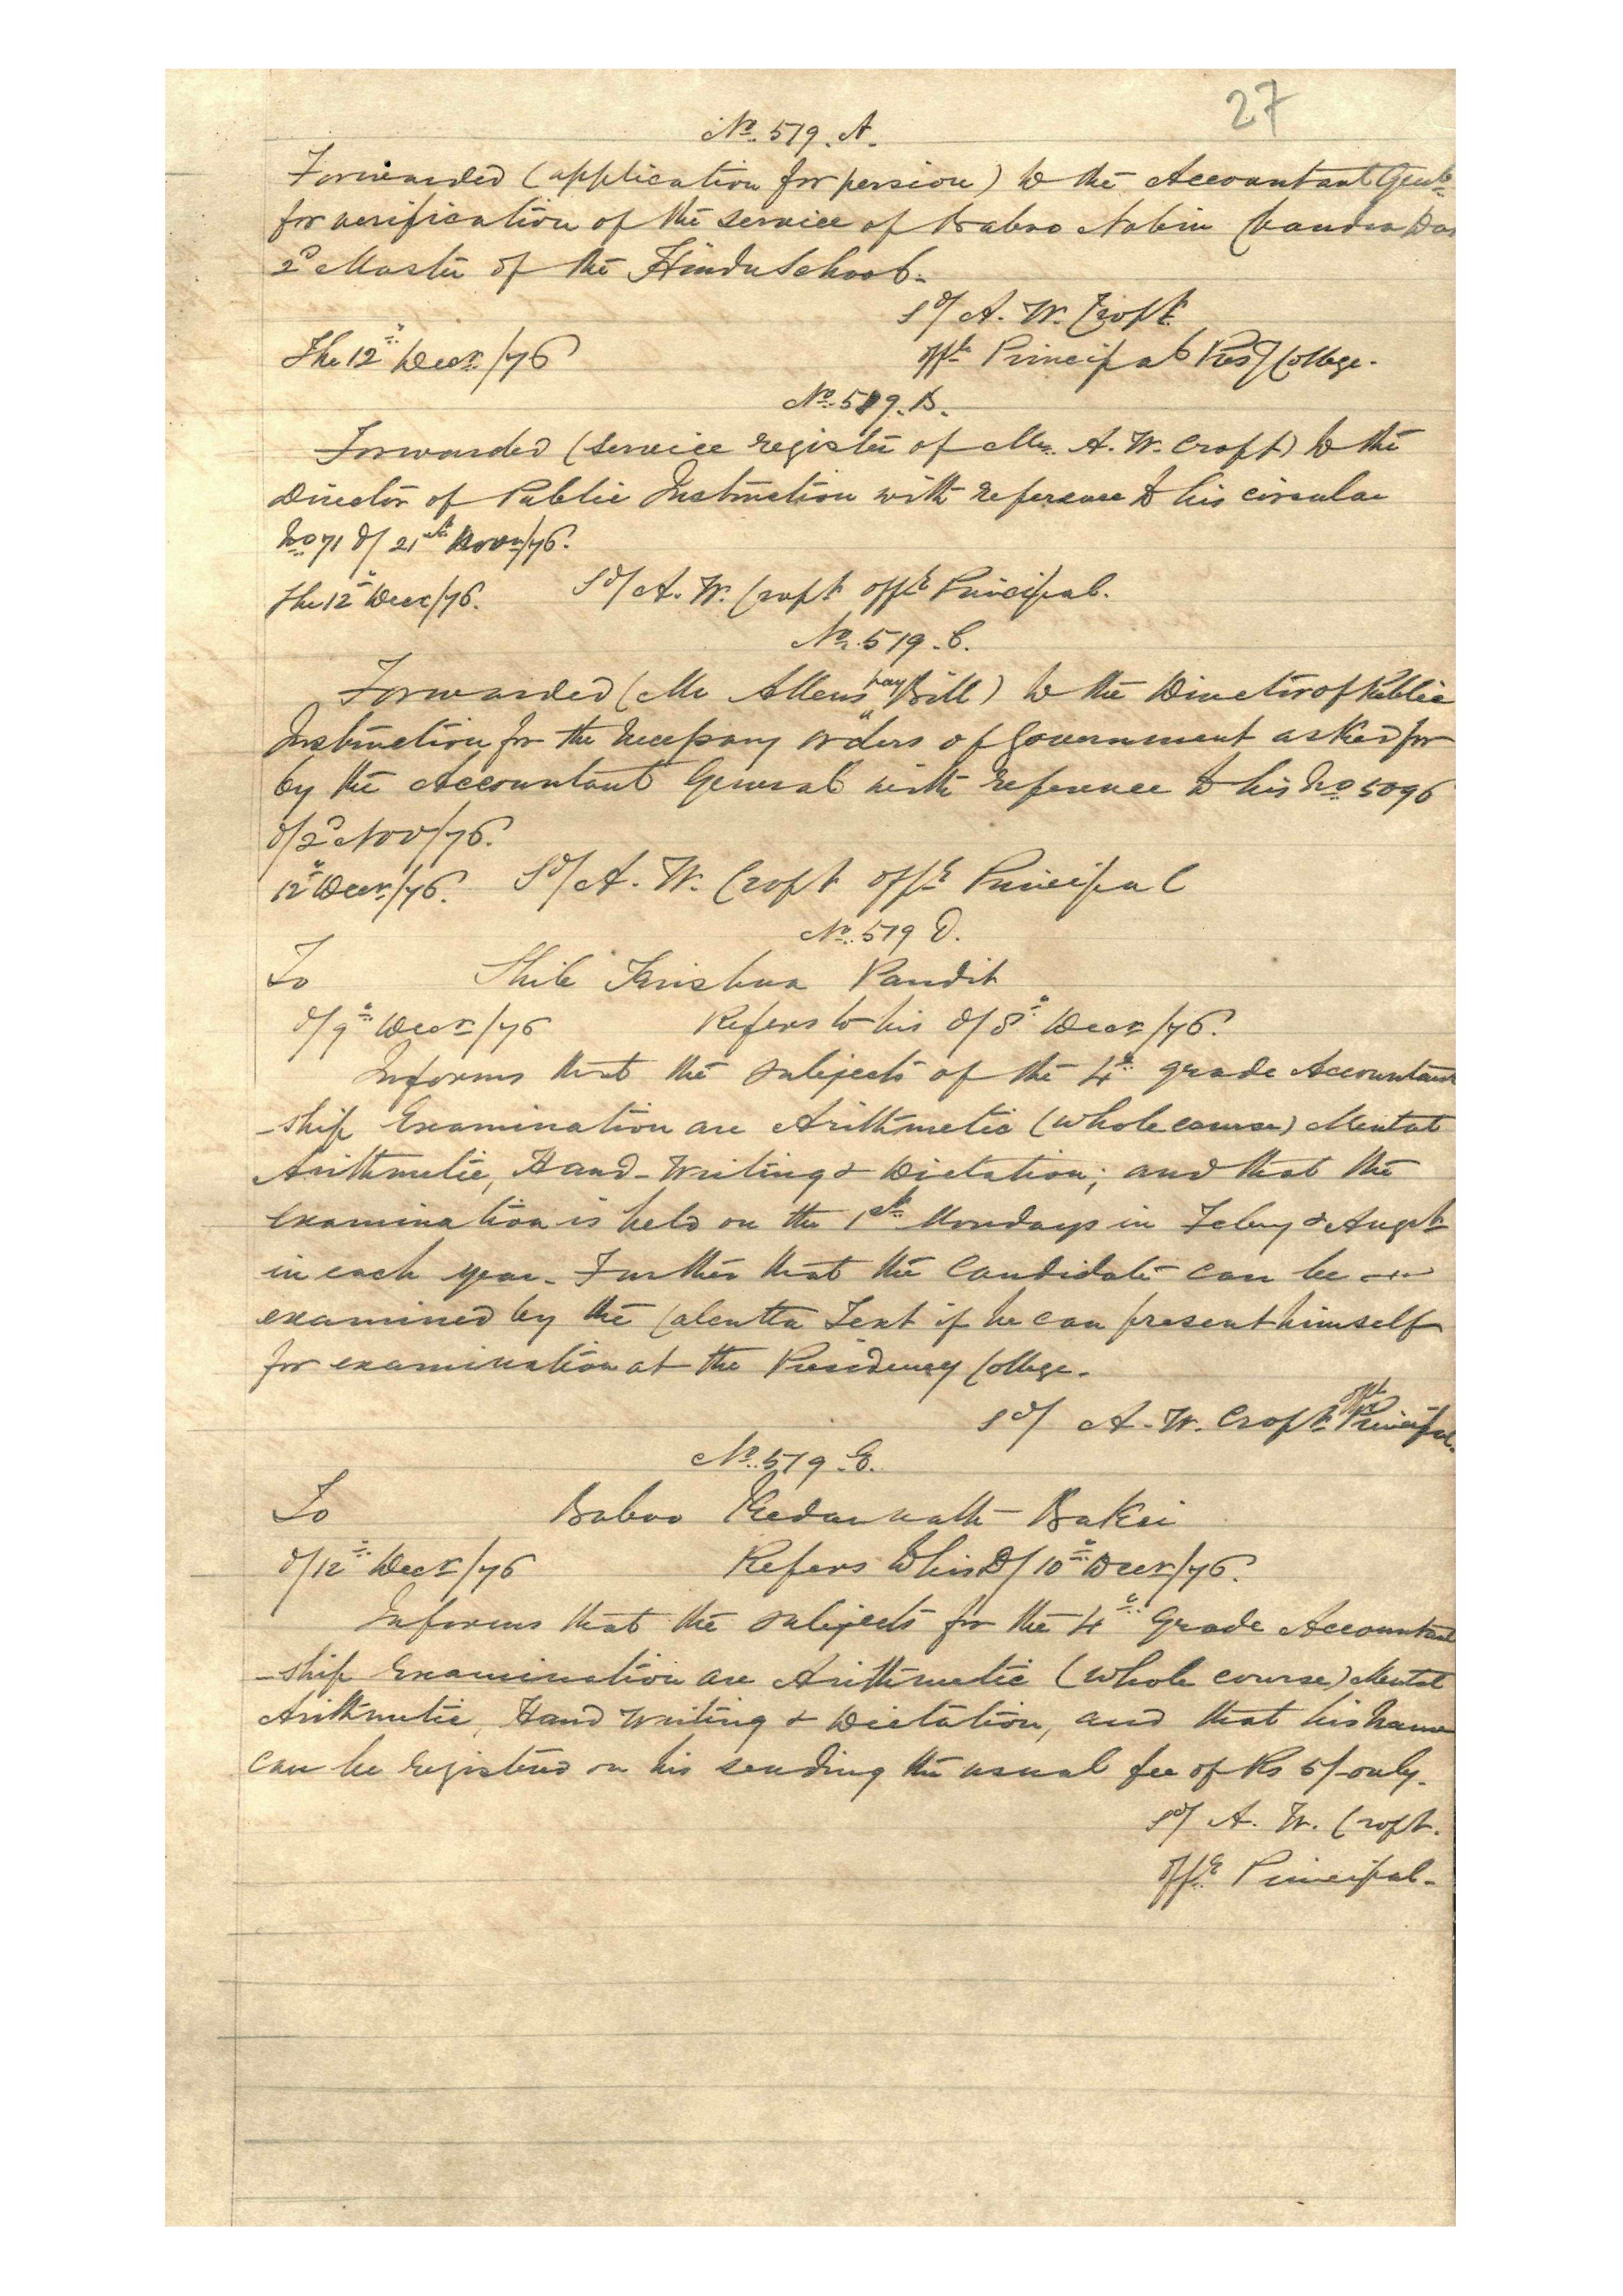 27
No. 519. A.
Forwarded (application for pension) to the Accountant Genl.
for verification of the service of Baboo Nobin Chandra Das
2d Master of the Hindu School.
Sd/ A. W. Croft
The 12th Decr./76 Offg. Principal Presy College.
No. 519. B.
Forwarded (Service register of Mr. A. W. Croft) to the
Director of Public Instruction with reference to his circular
No 71 d/ 21st Novr/76.
The 12th Decr/76. Sd/ A. W. Croft Offg. Principal.
No. 519. C.
Forwarded (Mr Allens pay Bill) to the Director of Public
Instruction for the necessary orders of Government asked for
by the Accountant General with reference to his No 5096
d/ 2d Nov/76.
12th Decr./76. Sd/ A. W. Croft Offg. Principal
No. 519 D.
To Shib Krishna Pandit
d/ 9th Decr/76 Refers to his d/ 8th Decr/76.
Informs that the subjects of the 4th grade Accountant
-ship Examination are Arithmetic (whole course) Mental
Arithmetic, Hand-Writing & Dictation; and that the
examination is held on the 1st Mondays in Feby & Augst
in each year. Further that the Candidate can be
examined by the Calcutta Text if he can present himself
for examination at the Presidency College.
Sd/ A. W. Croft Offg. Principal.
No. 519 E.
To Baboo Kedarnath Baksi
d/ 12th Decr/76 Refers to his D/ 10th Decr/76.
Informs that the subjects for the 4th Grade Accountant
-ship Examination are Arithmetic (whole course) Mental
Arithmetic, Hand Writing & Dictation, and that his name
can be registered on his sending the usual fee of Rs 5/- only.
Sd/ A. W. Croft.
Offg. Principal.